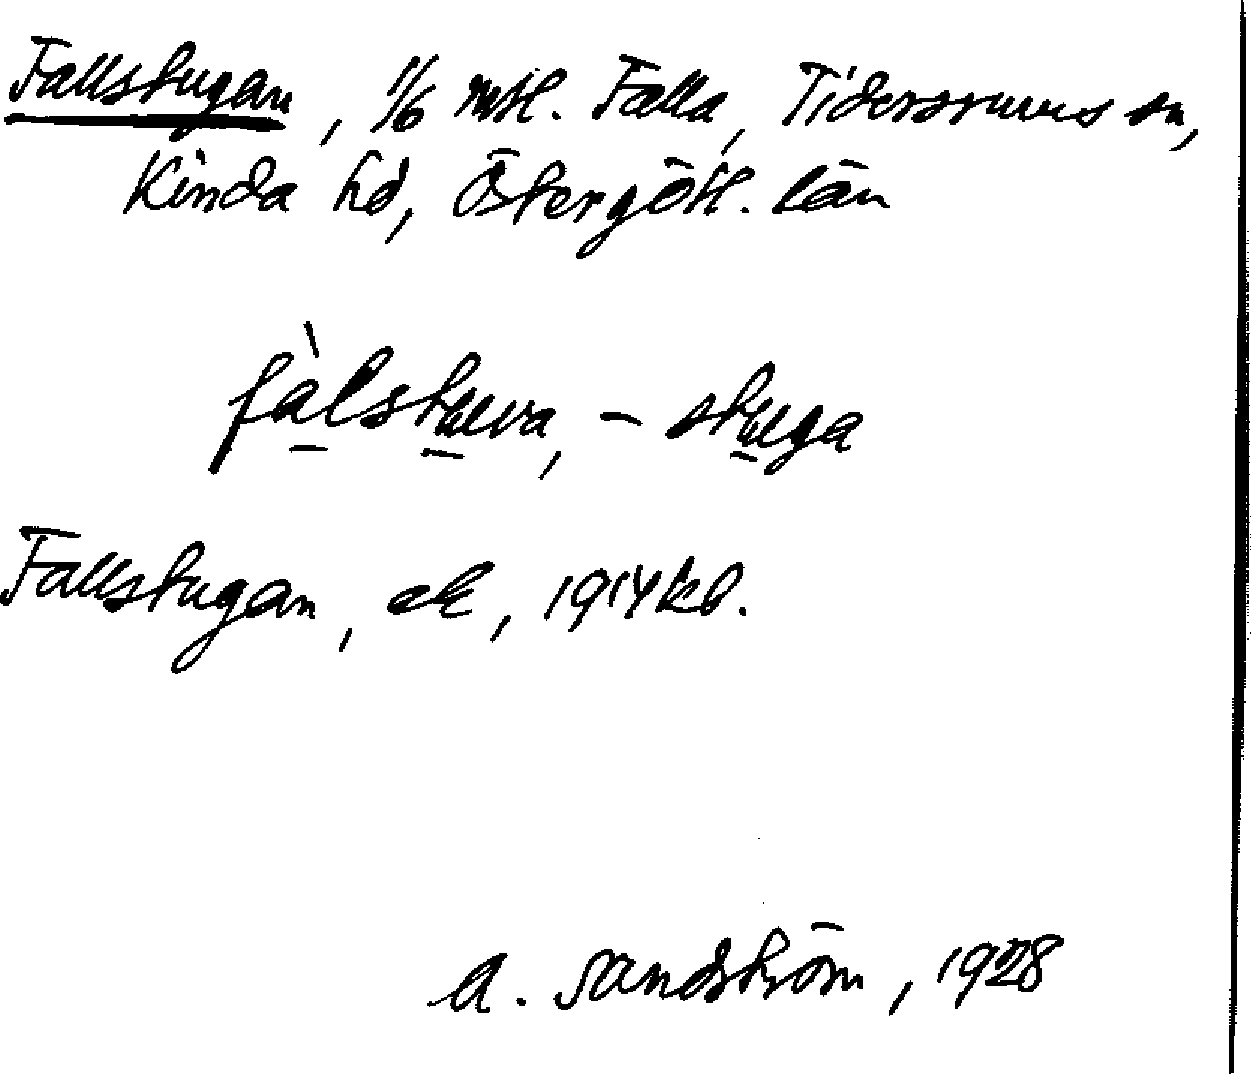 Fallstugan, 1/6 mtl. Falla, Tidersrums sn,
Kinda hd, Östergötl. län
fàlstuva, - stuga
Fallstugan, ek, 1914 kb.
A. Sandström, 1928